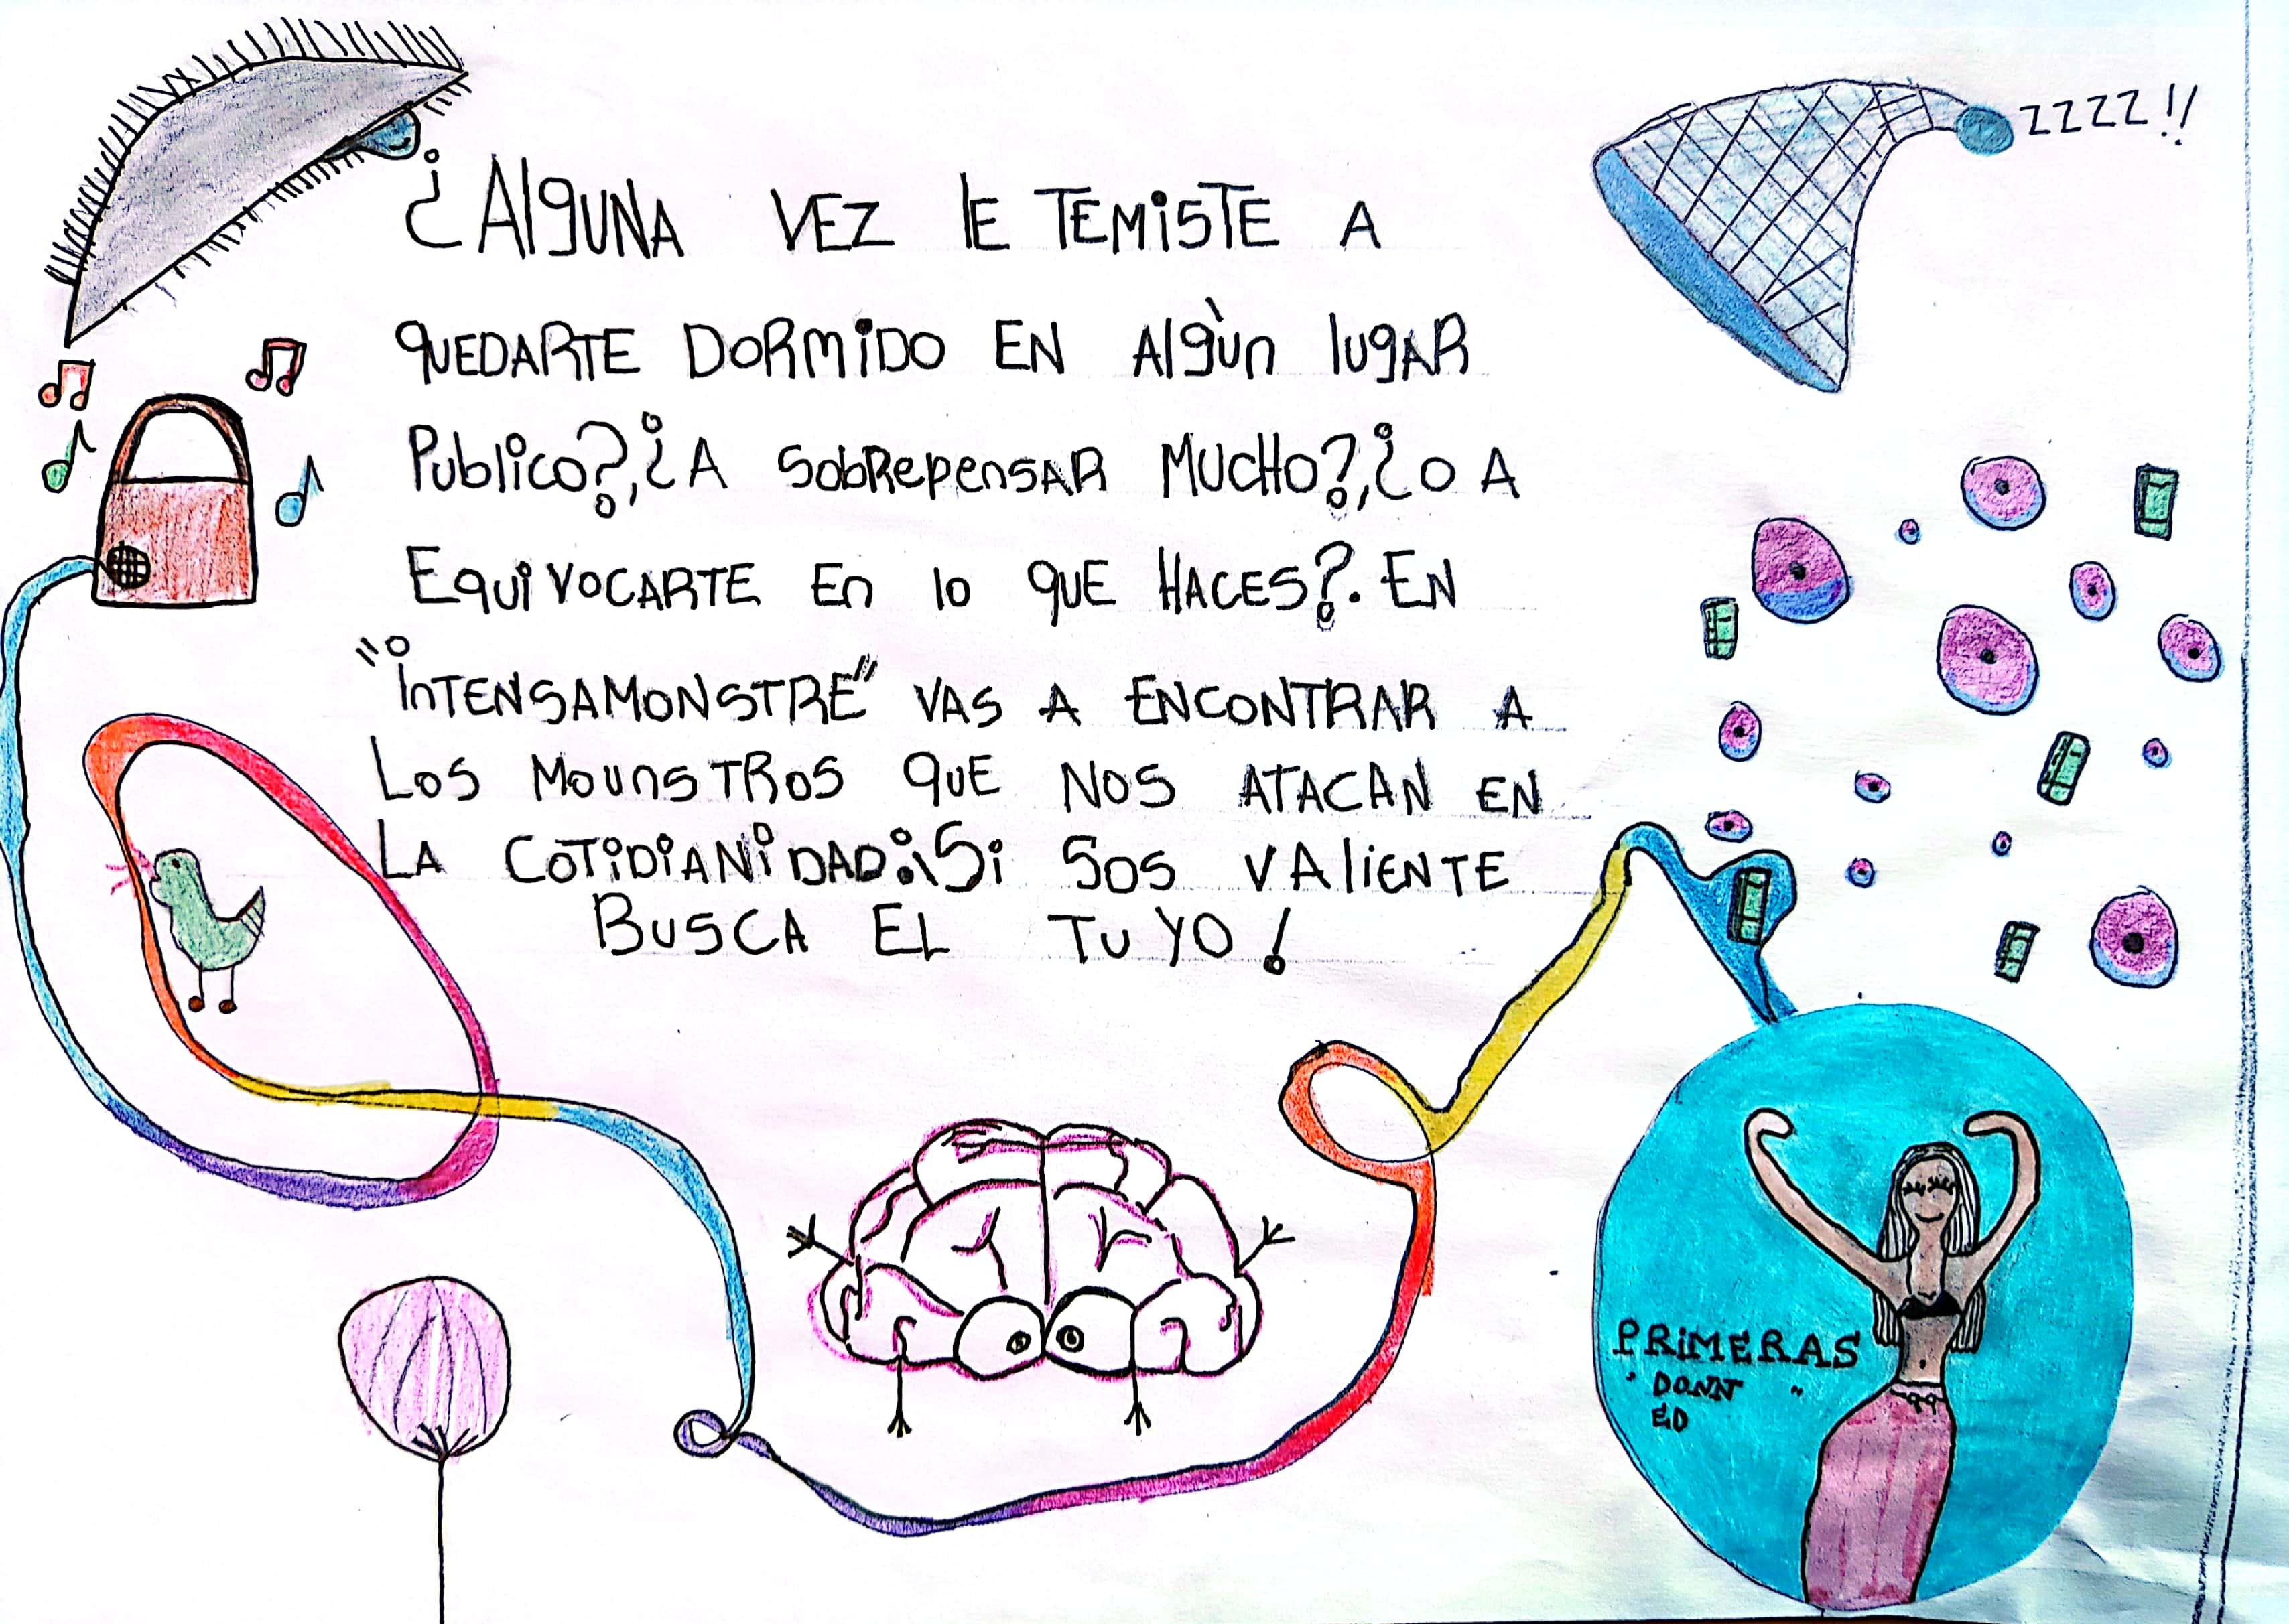 ZZZZ!!
¿Alguna vez le temiste a
quedarte dormido en algùn lugar
publico?,¿a sobrepensar mucho?,¿o a
equivocarte en lo que haces?. En
"intensamonstre" vas a encontrar a
los mounstros que nos atacan en
la cotidianidad.¡Si sos valiente
busca el tuyo!
PRIMERAS